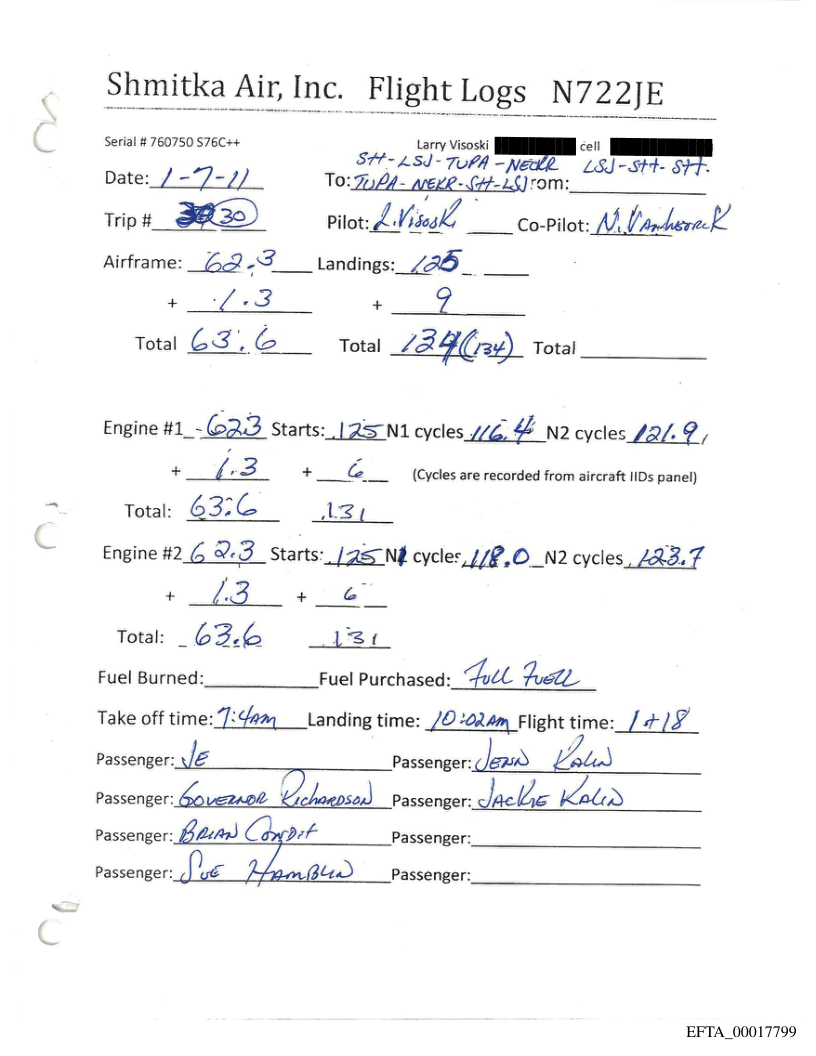 Shmitka Air, Inc. Flight Logs N722JE
Serial # 760750 S76C++ Larry Visoski cell
STH-LSJ-TUPA-NEKR LSJ-STH-STT.
Date: 1-7-11 To: TUPA-NEKR-STH-LSJ rom:
Trip # 30 Pilot: L. Visoski Co-Pilot:
Airframe: 62.3 Landings: 125
+ 1.3 + 9
Total 63.6 Total 134 (134) Total
Engine #1 62.3 Starts: 125 N1 cycles 116.4 N2 cycles 121.9
+ 1.3 + 6 (Cycles are recorded from aircraft IIDs panel)
Total: 63.6 131
Engine #2 62.3 Starts: 125 N1 cycles 118.0 N2 cycles 123.7
+ 1.3 + 6
Total: 63.6 131
Fuel Burned: Fuel Purchased: Full Fuell
Take off time: 7:4AM Landing time: 10:02AM Flight time: 1+18
Passenger: JE Passenger: Jenn Kalin
Passenger: Governor Richardson Passenger: Jackie Kalin
Passenger: Brian Condit Passenger:
Passenger: Sue Hamblin Passenger:
EFTA_00017799